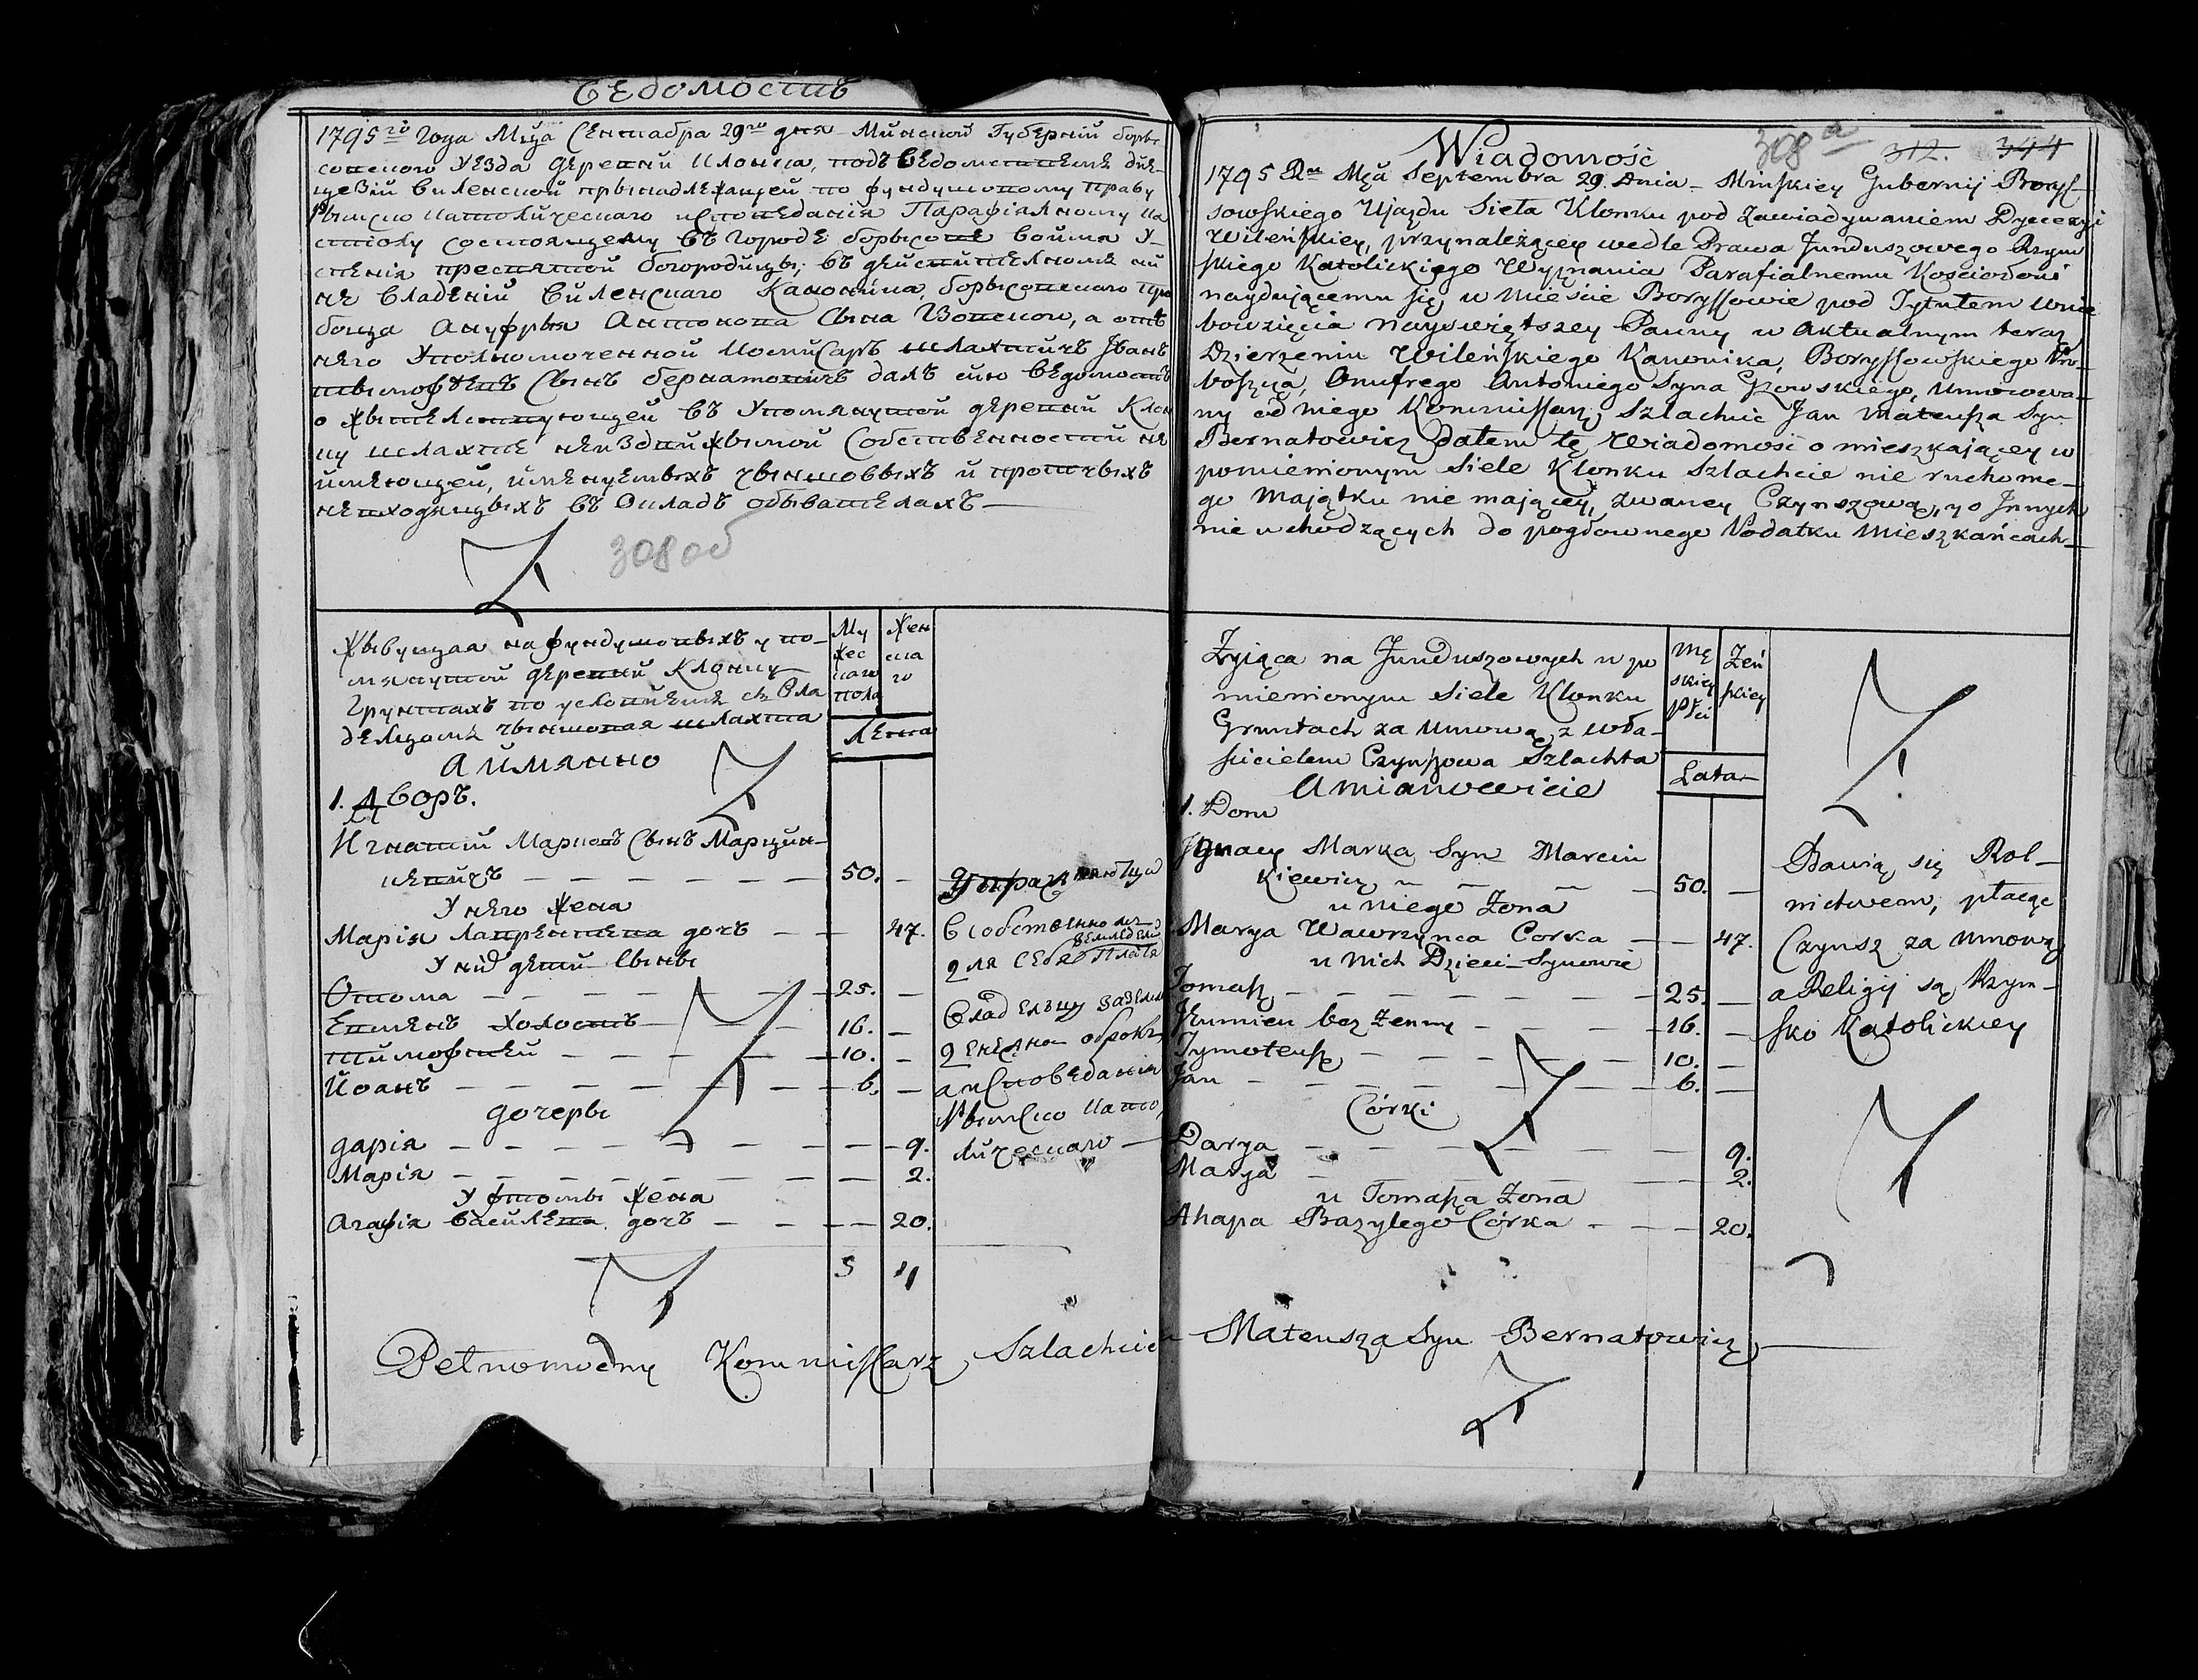 Ведомость
1795го Года Мца Сентабра 29го дня Минской Губернии боры-
совского Уезда деревни Клонка, подъ ведомствомъ дие-
цезии виленской прынадлежащей по фундушовому праву
Рымско католическаго исповедания Парафіялному ко
стіолу состоящему въ городе борысове воимя У-
спения пресвятой богородицы, въ действителномъ ны
не владении виленскаго Каноника, борысовскаго про
боща Ануфрыя Антонова Сына, а отъ
него уполномоченной комисаръ шляхтичъ Иванъ
Сынъ бернатовичъ далъ сию ведомость
о жытелствующей въ упомянутой деревни Клон
ку шляхте неиздвижымой собственности не
имеющей, имянуемыхъ чыншовыхъ и протчыхъ
невходящыхъ въ окладъ обывателахъ —
308 об
Жывущая на фундушовыхъ у по-
мянутой деревни Клонку
Грунтахъ по условиямъ съ вла
делцомъ чыншовая шляхта
а имянно
Му
жес
каго
пола
Жен
ска
го
Лета
1. Дворъ.
Игнатий Марковъ Сынъ Марцин-
кевичъ — 50. —
У него жена
Мария Лавреннтева дочъ — 47.
У них дети Сыны
Отома — 25. —
холостъ — 16. —
тимофтей — 10. —
Иоанъ — 6. —
дочеры
дария — 9.
Мария — 2.
У фтомы жена
Агафия василева дочъ — 20.
5 4
В собственно
земледели
для себя Платя
владельцу
денежной оброкъ
а исповедания
Рымско като
лическаго —
Wiadomość
308 а 312. 344
1795 Mca Septembra 29. Dnia - Minskiey Gubernij Borys-
sowskiego Ujazdu Sieła Klonku pod zawiadywaniem Dyecezyi
Wileńskiey, przynależącey wedle Prawa Funduszowego Rzym
skiego Katolickiego Wyznania Parafialnemu Kosciołowi
nayduiącemu się w Mieście Boryssowie pod Tytułem Wnie
bowzięcia Nayswiętszey Panny w Aktualnym teraz
Dzierżeniu Wileńskiego Kanonika, Boryssowskiego Pro-
boszcza, Onufrego Antoniego Syna, Umocowa-
ny od niego Kommissarz Szlachcic Jan Mateusza Syn
Bernatowicz dałem tę Wiadomość o mieszkaiącey w
pomienionym Siele Klonku Szlachcie nie ruchome-
go Maiątku nie maiącey, zwaney Czynszową, y o Innych
nie wchodzących do pogłownego Podatku Mieszkańcach —
Zyiąca na Funduszowych w po
mienionym Siele Klonku
Gruntach za Umową z Wła-
scicielem Czynszowa Szlachta
Amianowicie
Mę
skiey
Płci
Zeń
skiey
Lata
1. Dom
Ignacy Marka Syn Marcin
kiewicz — 50. —
u Niego Zona
Marya Wawrzynca Corka — 47.
u Nich Dzieci Synowie
Tomasz — 25. —
bez Zenny — 16. —
Tymoteusz — 10. —
Jan — 6. —
Córki
Darya — 9.
Marya — 2.
u Tomasza Zona
Ahapa Bazylego Córka — 20.
Bawią się Rol-
nictwem, płacąc
Czynsz za Umową
a Religij są Rzym-
sko Katolickiey
Pełnomocny Kommissarz Szlachcic Mateusza Syn Bernatowicz